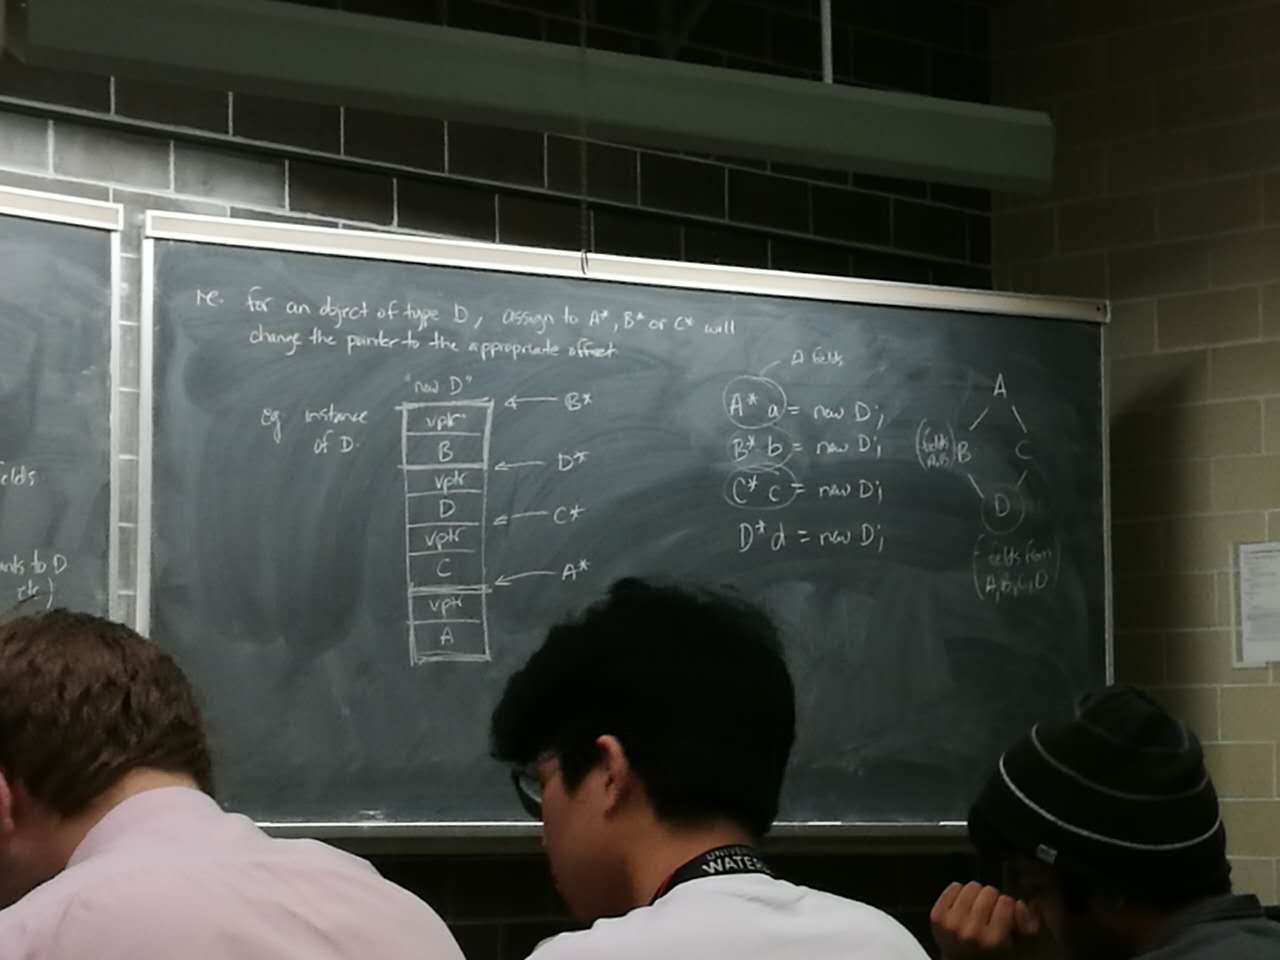 re. for an object of type D, assign to A*, B* or C* will
change the pointer to the appropriate offset
eg instance
of D.
"new D"
vptr
B
vptr
D
vptr
C
vptr
A
B*
D*
C*
A*
A fields
A* a = new D;
B* b = new D;
C* c = new D;
D* d = new D;
A
(fields
A,B)
B
C
D
(fields from
A,B,C,D)
to D
UNIVER
WATER